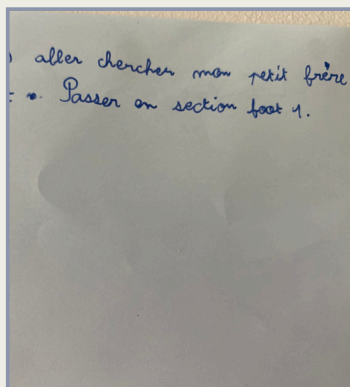 aller chercher mon petit frère
Passer en section foot 1.